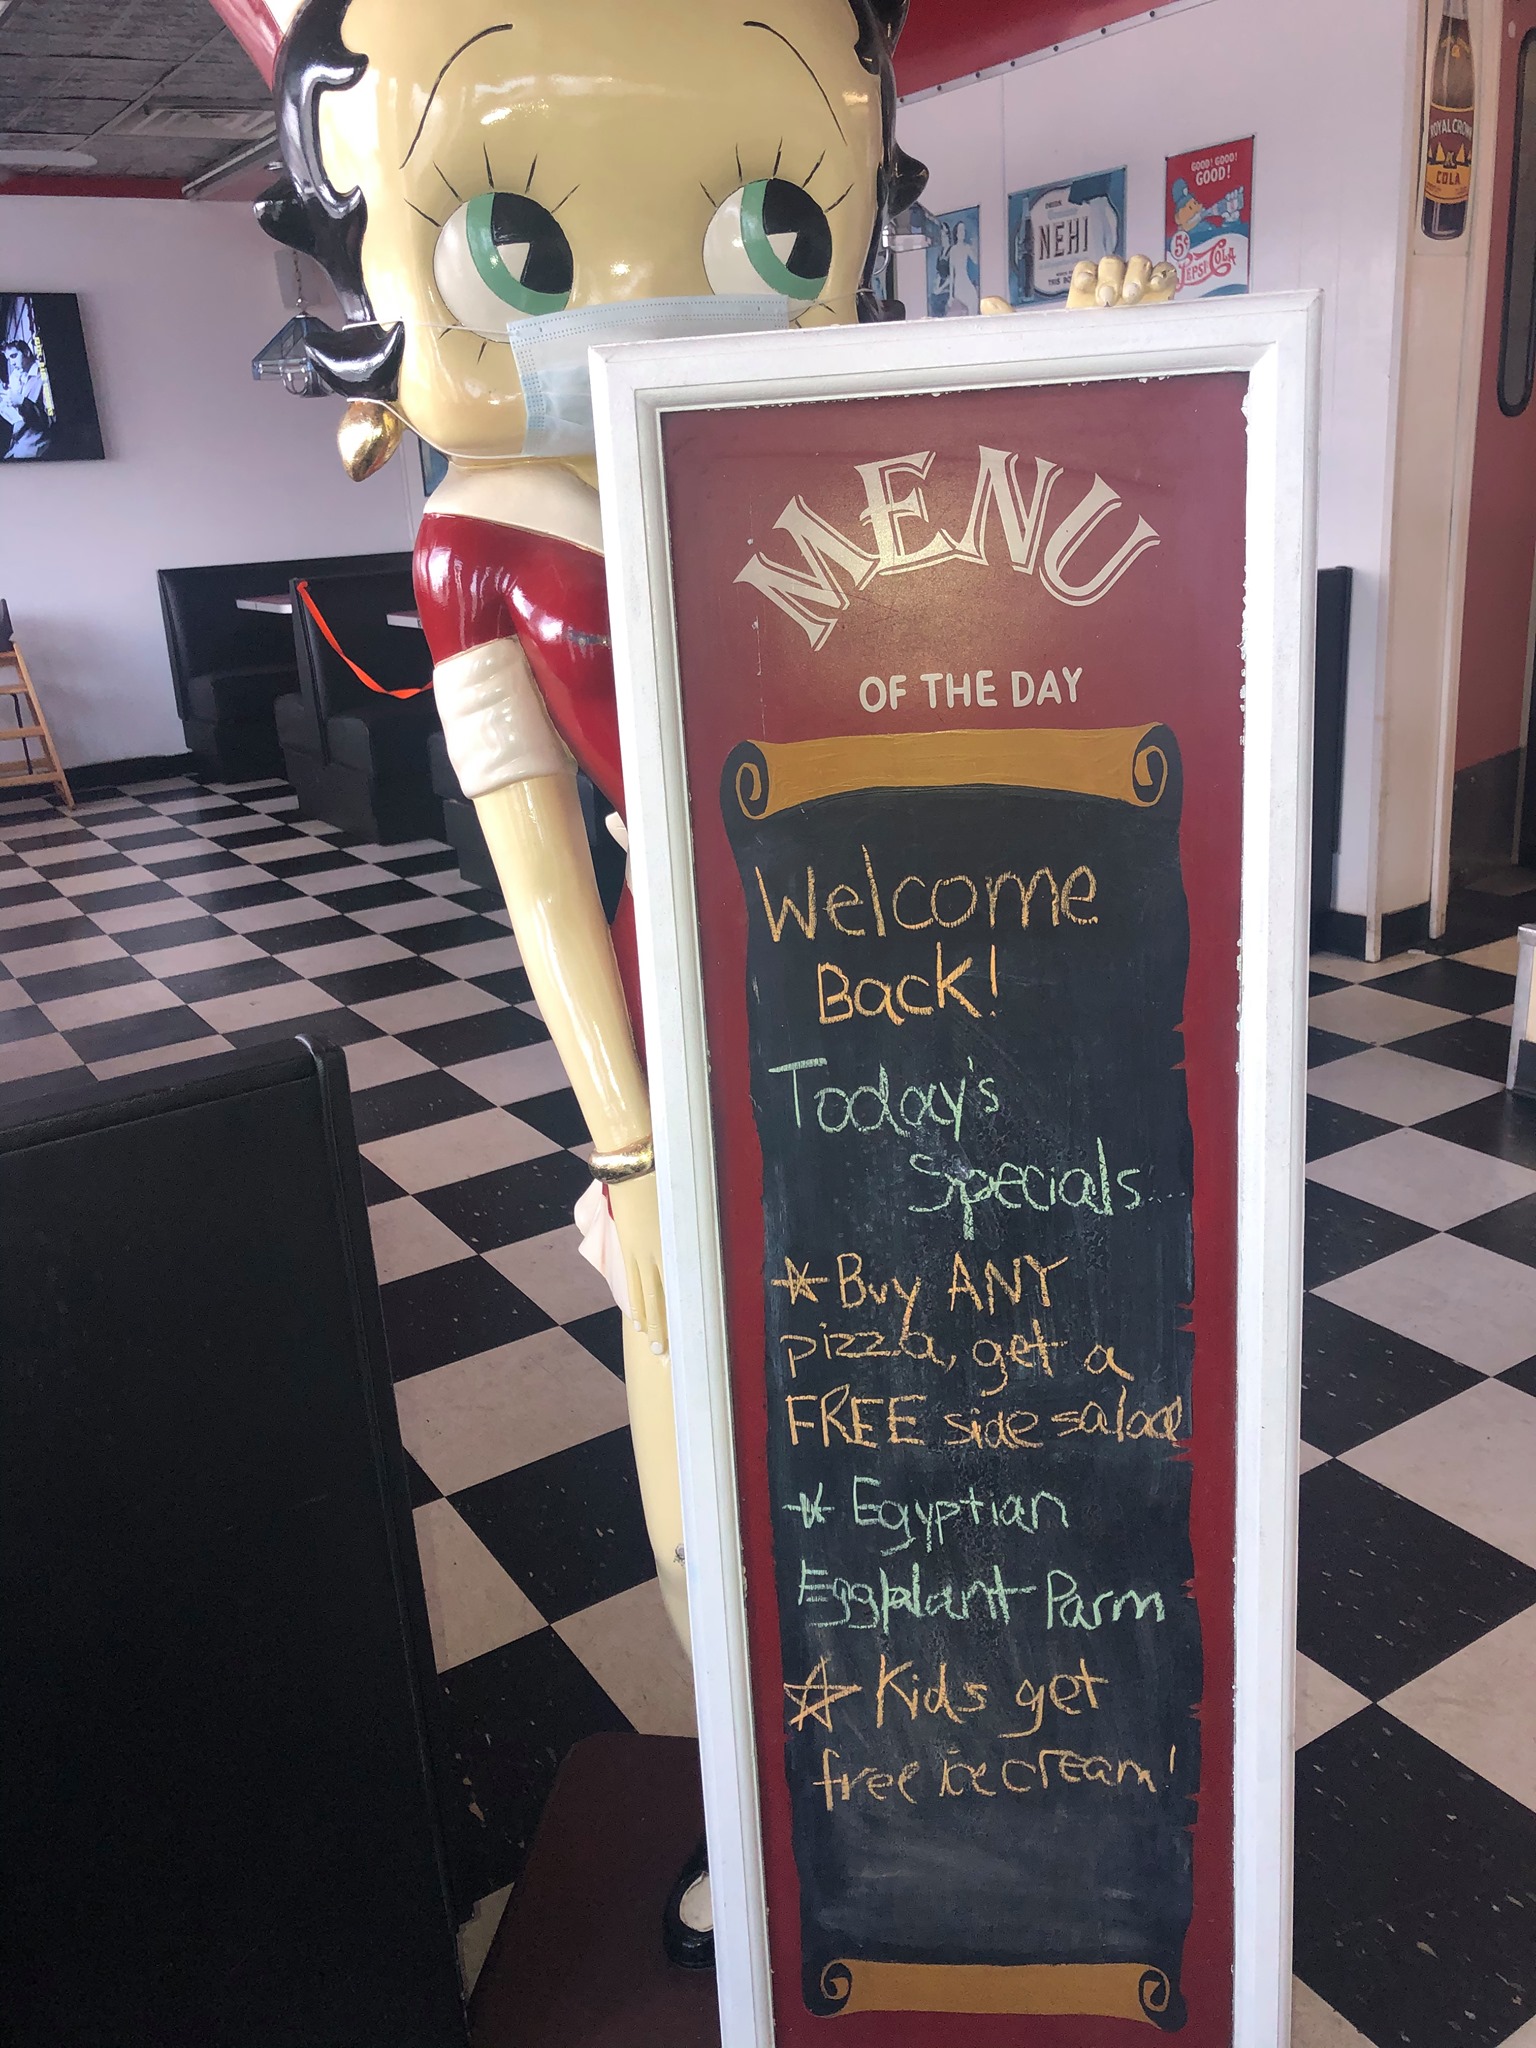 ROYAL CROWN
RC
COLA
GOOD! GOOD!
GOOD!
5¢
PEPSI-COLA
DRINK
NEHI
MENU
OF THE DAY
Welcome
Back!
Today's
Specials
Buy ANY
pizza, get a
FREE side salad
Egyptian
Eggplant Parm
Kids get
free ice cream!